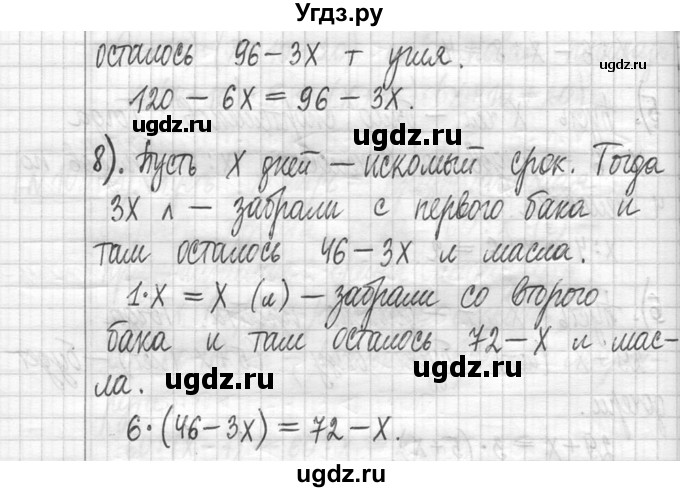 Угдз.ру
осталось 96-3X т угля.
ugdz.ru
120 - 6X = 96 - 3X.
ugdz.ru ugdz.ru
8). Пусть X дней - искомый срок. Тогда
3X л - забрали с первого бака и
там осталось 46-3X л масла.
1·X = X (л) - забрали со второго
бака и там осталось 72-X л мас-
ла.
ugdz.ru ugdz.ru
6·(46-3X) = 72-X.
ugdz.ru